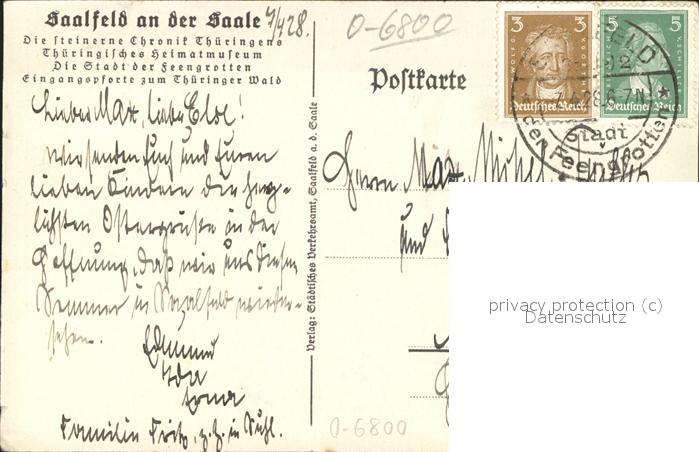 Saalfeld an der Saale 7/428.
Die steinerne Chronik Thüringens
Thüringisches Heimatmuseum
Die Stadt der Feengrotten
Eingangspforte zum Thüringer Wald
0-6800
Postkarte
3 3
Deutsches Reich
5 5
Deutsches Reich
Stadt
der Feengrotten
Lieber Max, liebe Else!
Wir senden Euch und Euren
lieben Kindern die herz-
lichsten Ostergrüße in der
Hoffnung, daß wir uns diesen
Sommer in Saalfeld wieder-
sehen.
Edmund
Ida
Erna
Familie Fritz, z. Z. in Suhl.
Verlag: Städtisches Verkehrsamt, Saalfeld a. d. Saale
Herrn Max
und
privacy protection (c)
Datenschutz
0-6800